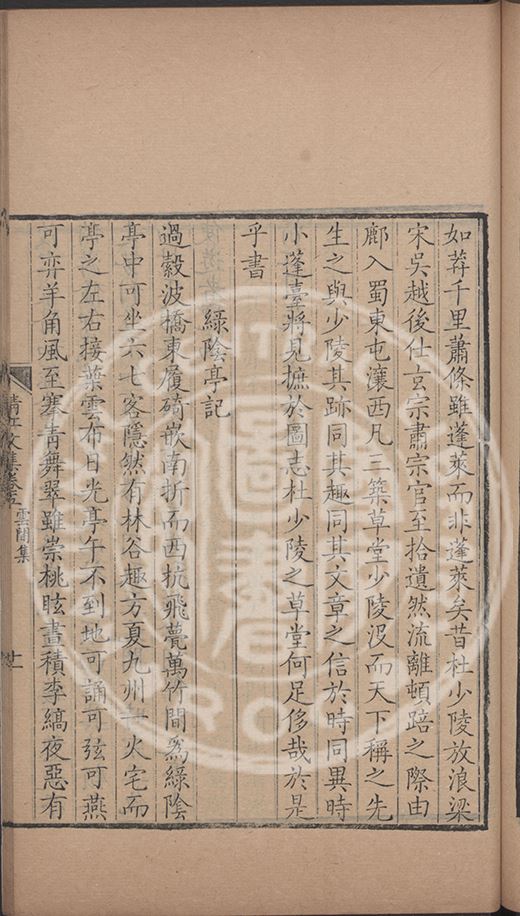 如莽千里蕭條雖蓬萊而非蓬萊矣昔杜少陵放浪梁
宋吳越後仕玄宗肅宗官至拾遺然流離頓踣之際由
鄜入蜀東屯瀼西凡三築草堂少陵沒而天下稱之先
生之與少陵其跡同其趣同其文章之信於時同異時
小蓬臺將見摭於圖志杜少陵之草堂何足侈哉於是
乎書
綠陰亭記
過縠波橋東履碕嵌南折而西抗飛甍萬竹間爲綠陰
亭中可坐六七客隱然有林谷趣方夏九州一火宅而
亭之左右接葉雲布日光亭午不到地可誦可弦可燕
可弈羊角風至塞青舞翠雖崇桃眩晝積李縞夜惡有
清江文集卷五
雲間集
十一